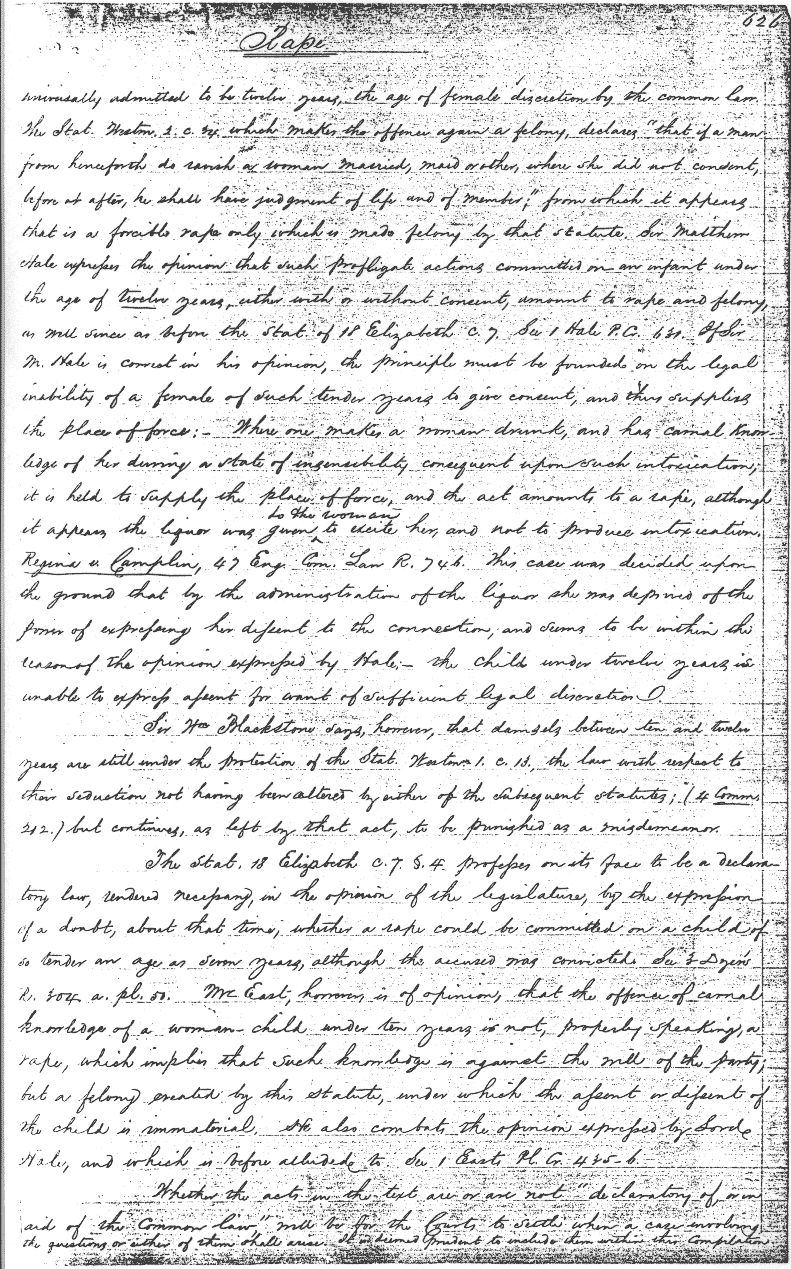 626
Rape
universally admitted to be twelve years, the age of female discretion by the common law.
The Stat. Westm. 2. c. 34. which makes the offence again a felony, declares "that if a man
from henceforth do ravish a woman married, maid or other, where she did not consent,
before or after, he shall have judgment of life and of member;" from which it appears
that is a forcible rape only which is made felony by that statute. Sir Matthew
Hale expresses the opinion that such profligate actions committed on an infant under
the age of twelve years, either with or without consent, amount to rape and felony,
as well since as before the Stat. of 18 Elizabeth c. 7. See 1 Hale P.C. 631. If Sir
M. Hale is correct in his opinion, the principle must be founded on the legal
inability of a female of such tender years to give consent, and thus supplies
the place of force:- Where one makes a woman drunk, and has carnal know-
ledge of her during a state of insensibility consequent upon such intoxication,
it is held to supply the place of force, and the act amounts to a rape, although
it appears the liquor was given to the woman to excite her, and not to produce intoxication.
Regina v. Camplin, 47 Eng. Com. Law R. 746. This case was decided upon
the ground that by the administration of the liquor she was deprived of the
power of expressing her dissent to the connection, and seems to be within the
reason of the opinion expressed by Hale:- the child under twelve years is
unable to express assent for want of sufficient legal discretion.
Sir Wm Blackstone says, however, that damsels between ten and twelve
years are still under the protection of the Stat. Westm. 1. c. 13, the law with respect to
their seduction not having been altered by either of the subsequent statutes; (4 Comm.
212.) but continues, as left by that act, to be punished as a misdemeanor.
The Stat. 18 Elizabeth c. 7. §. 4. professes on its face to be a declara-
tory law, rendered necessary, in the opinion of the legislature, by the expression
of a doubt, about that time, whether a rape could be committed on a child of
so tender an age as seven years, although the accused was convicted. See 3 Dyer's
R. 304 a. pl. 50. Mr East, however, is of opinion, that the offence of carnal
knowledge of a woman-child under ten years is not, properly speaking, a
rape, which implies that such knowledge is against the will of the party;
but a felony created by this statute, under which the assent or dissent of
the child is immaterial. He also combats the opinion expressed by Lord
Hale, and which is before alluded to. See 1 East's Pl. Cr. 435-6.
Whether the acts in the text are or are not "declaratory of, or in
aid of the Common law" will be for the Courts to settle when a case involving
the questions or either of them shall arise. It is deemed prudent to include them within this Compilation